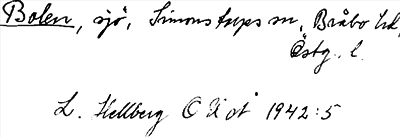 Bolen, sjö, Simonstorps sn, Bråbo hd,
Östg. l.
L. Hellberg O Ä ot 1942:5